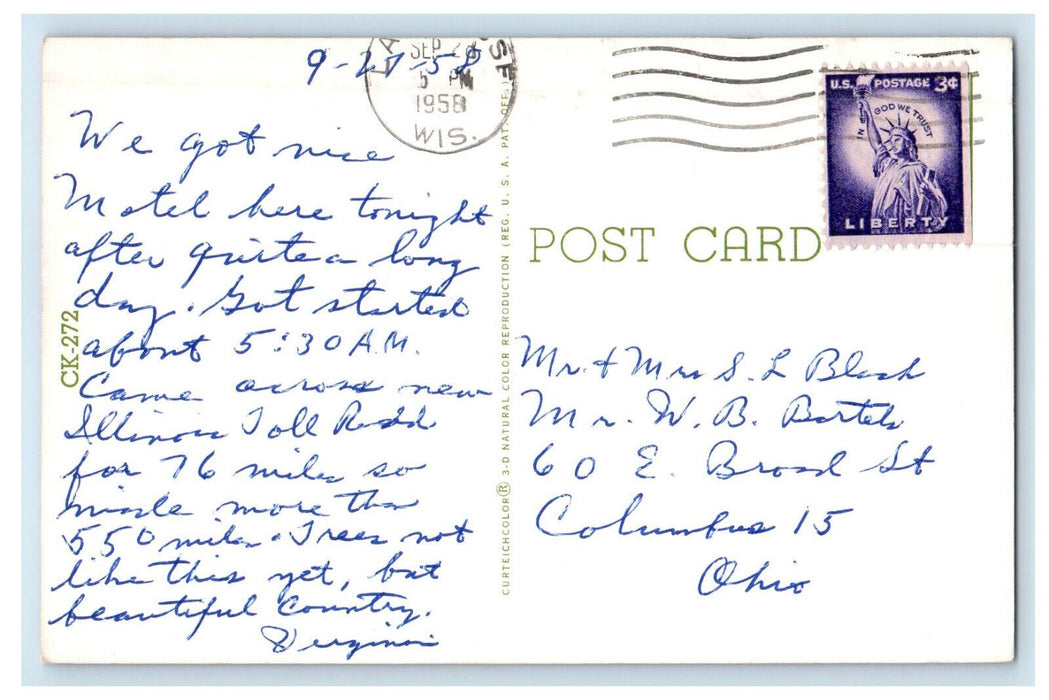 9-27-58
We got nice
Motel here tonight
after quite a long
day. Got started
about 5:30 A.M.
Came across new
Illinois Toll Road
for 76 miles so
made more than
550 miles. Trees not
like this yet, but
beautiful country.
Virginia
CK-272
SEP 2
5 PM
1958
WIS.
CURTEICHCOLOR® 3-D NATURAL COLOR REPRODUCTION (REG. U. S. A. PAT. OFF.)
U.S. POSTAGE 3¢
IN GOD WE TRUST
LIBERTY
POST CARD
Mr. & Mrs S. L
Mr. W. B. Bartels
60 E. Broad St
Columbus 15
Ohio